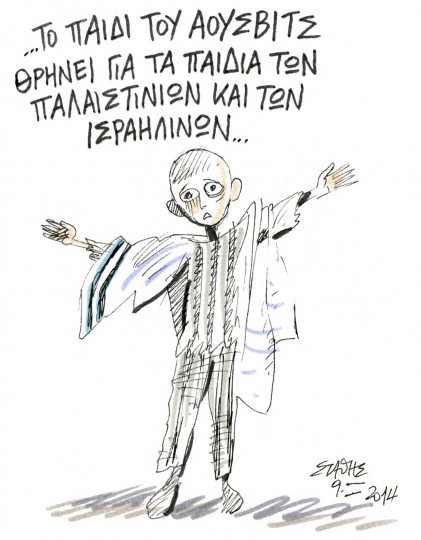 ...ΤΟ ΠΑΙΔΙ ΤΟΥ ΑΟΥΣΒΙΤΣ
ΘΡΗΝΕΙ ΓΙΑ ΤΑ ΠΑΙΔΙΑ ΤΩΝ
ΠΑΛΑΙΣΤΙΝΙΩΝ ΚΑΙ ΤΩΝ
ΙΣΡΑΗΛΙΝΩΝ...
ΣΤΑΘΗΣ
9.I 2014